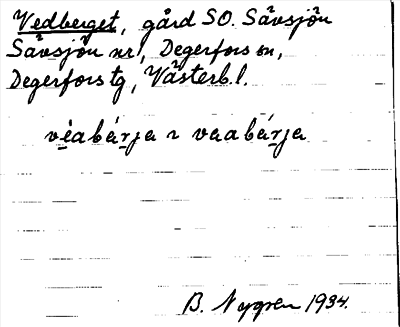 Vedberget, gård SO. Sävsjön
Sävsjön nr 1, Degerfors sn,
Degerfors tg, Västerb. l.
véabárja ~ vaabárja
B. Nygren 1934.